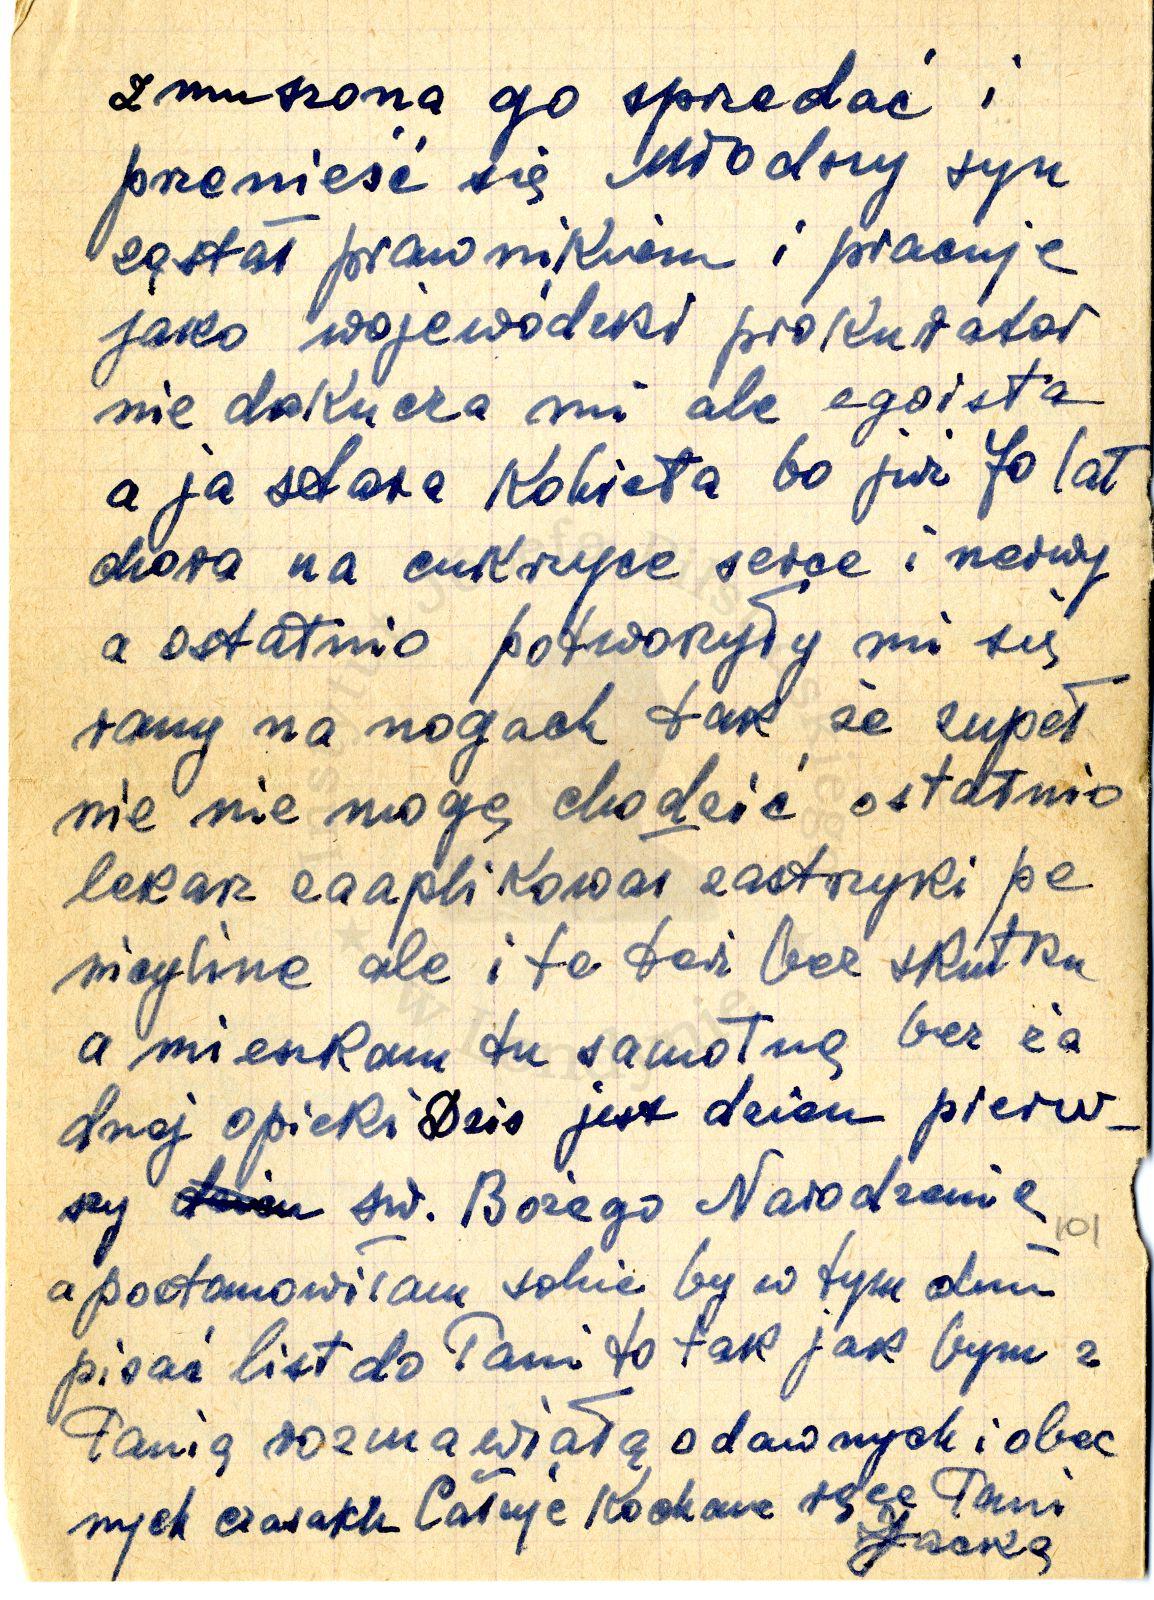 zmuszona go sprzedać i
przenieść się Młodszy syn
został prawnikiem i pracuje
jako wojewódzki prokurator
nie dokucza mi ale egoista
a ja stara kobieta bo już 70 lat
chora na cukrzyce serce i nerwy
a ostatnio potworzyły mi się
rany na nogach tak że zupeł
nie nie mogę chodzić ostatnio
lekarz zaaplikował zastrzyki pe
nicyline ale i to też bez skutku
a mieszkam tu samotną bez ża
dnej opieki Dzis jest dzien pierw-
szy dzien św. Bożego Narodzenię
a postanowiłam sobie by w tym dniu
pisać list do Pani to tak jak bym z
Panią rozmawiałą o dawnych i obec
nych czasakh Całuję Kochane ręce Pani
Jacką
101
Instytut Józefa Piłsudskiego
w Londynie